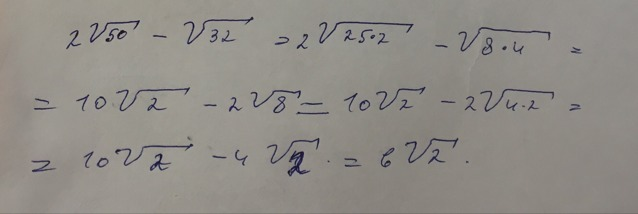 2√50 − √32 = 2√25·2 − √8·4 =
= 10√2 − 2√8 = 10√2 − 2√4·2 =
= 10√2 − 4√2 = 6√2.